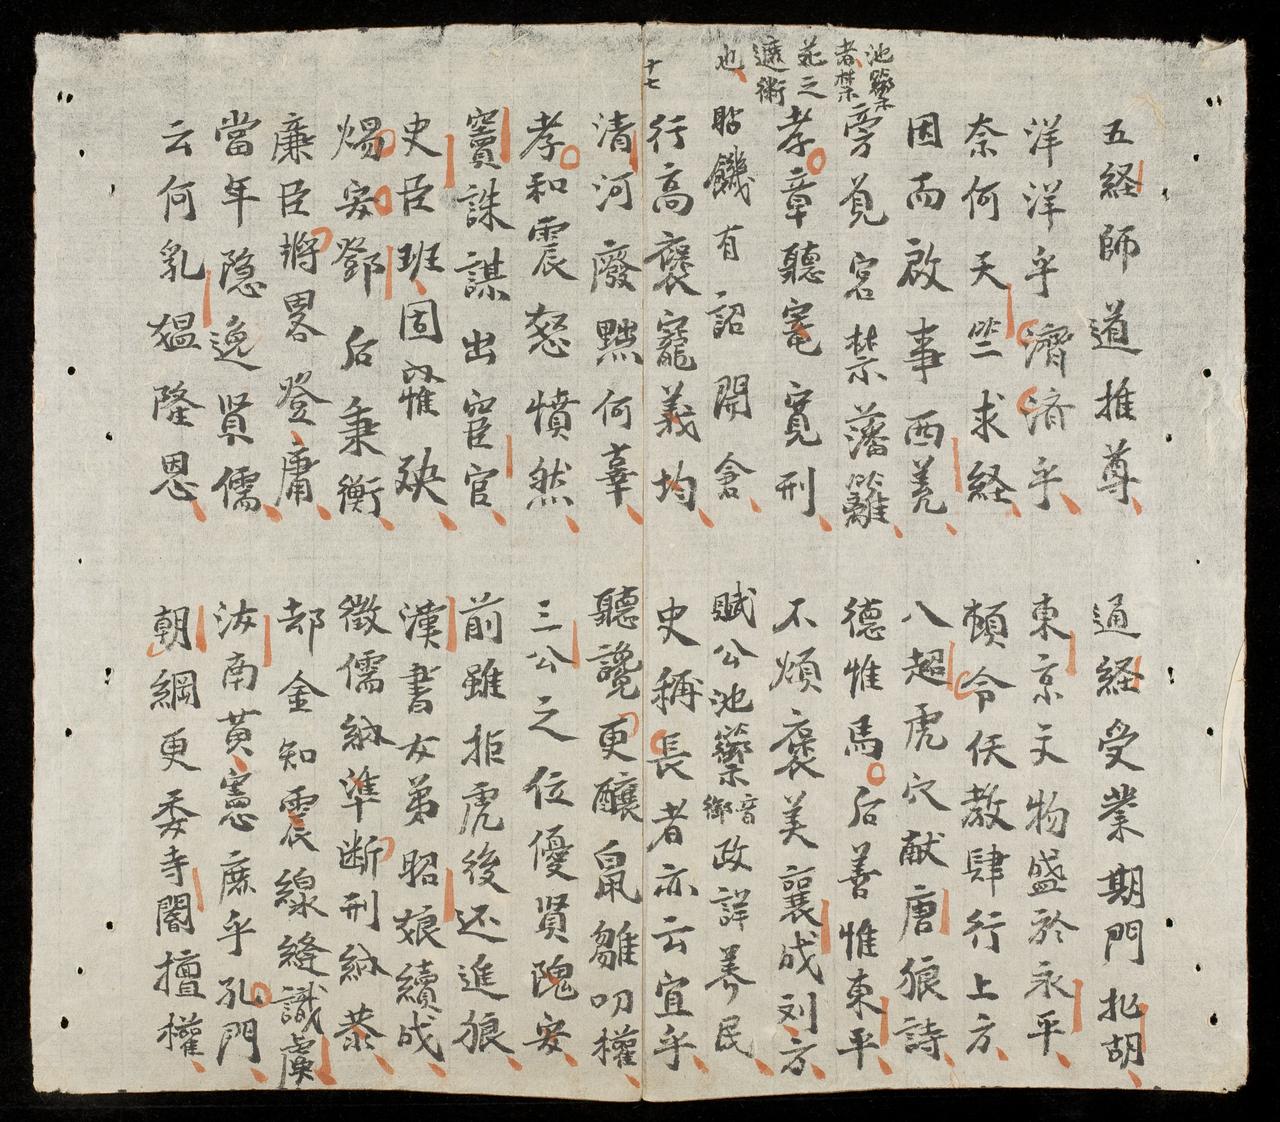 池籞
者禁
苑之
遮衛
也
十七
五経師道推尊
通経受業期門羽胡
洋洋乎濟濟乎
東京文物盛於永平
奈何天竺求経
頓令仸教肆行上方
因而啟事西羌
八超虎穴献唐狼詩
旁覓宮禁藩籬
德惟馬后善惟東平
孝章聽寃寬刑
不煩褒美讓成刘方
賑饑有詔開倉
賦公池籞音御政詳养民
行高褒寵義均
史稱長者亦云宜乎
清河廢黜何辜
聽讒更釀鼠雛叨權
孝和震怒憤然
三公之位優賢隗安
竇誅謀出宦官
前雖拒虎後还進狼
史臣班固罹殃
漢書女弟昭娘續成
煬安鄧后秉衡
徵儒納準断刑納恭
廉臣將畧登庸
却金知震線縫識虞
當年隐逸賢儒
汝南黃憲庶乎孔門
云何乳媪隆恩
朝綱更委寺閽擅權